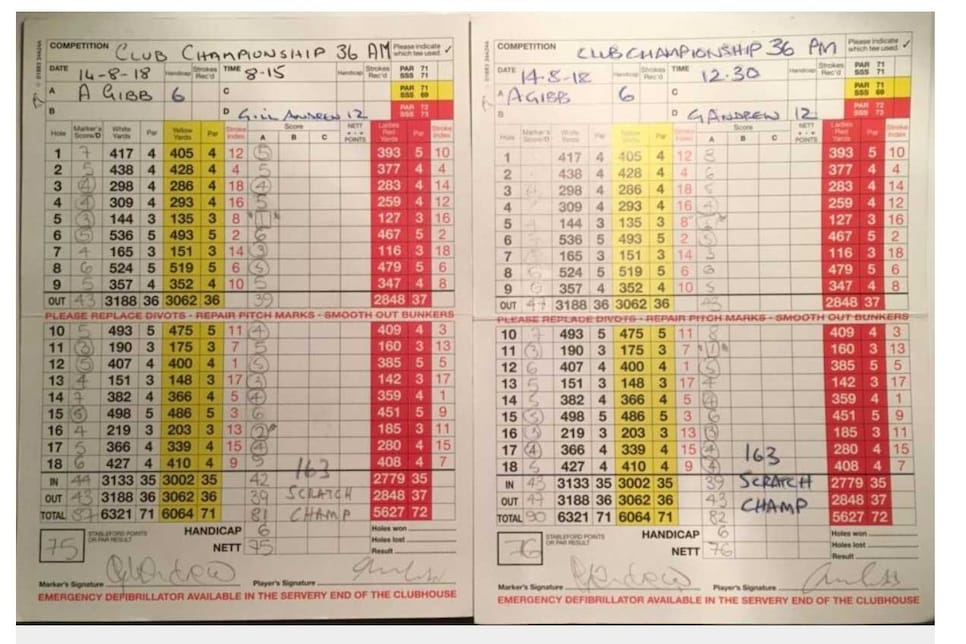 COMPETITION CLUB CHAMPIONSHIP 36 AM Please indicate which tee used. ✓
DATE 14-8-18 Handicap Strokes Rec'd TIME 8-15 Handicap Strokes Rec'd PAR 71 SSS 71
A A GIBB 6 C PAR 71 SSS 69
B D Gill ANDREW 12 PAR 72 SSS 73
Hole Marker's Score/D White Yards Par Yellow Yards Par Stroke Index Score A B C NETT + - • POINTS Ladies Red Yards Par Stroke Index
1 7 417 4 405 4 12 5 393 5 10
2 5 438 4 428 4 4 5 377 4 4
3 4 298 4 286 4 18 4 283 4 14
4 4 309 4 293 4 16 5 259 4 12
5 3 144 3 135 3 8 1 127 3 16
6 5 536 5 493 5 2 6 467 5 2
7 4 165 3 151 3 14 3 116 3 18
8 6 524 5 519 5 6 5 479 5 6
9 5 357 4 352 4 10 5 347 4 8
OUT 43 3188 36 3062 36 39 2848 37
PLEASE REPLACE DIVOTS - REPAIR PITCH MARKS - SMOOTH OUT BUNKERS
10 5 493 5 475 5 11 4 409 4 3
11 3 190 3 175 3 7 5 160 3 13
12 5 407 4 400 4 1 5 385 5 5
13 4 151 3 148 3 17 3 142 3 17
14 7 382 4 366 4 5 4 359 4 1
15 5 498 5 486 5 3 6 451 5 9
16 4 219 3 203 3 13 2 185 3 11
17 5 366 4 339 4 15 4 280 4 15
18 6 427 4 410 4 9 5 163 408 4 7
IN 44 3133 35 3002 35 42 2779 35
OUT 43 3188 36 3062 36 39 SCRATCH 2848 37
TOTAL 87 6321 71 6064 71 81 CHAMP 5627 72
75 STABLEFORD POINTS OR PAR RESULT HANDICAP 6 Holes won
NETT 75 Holes lost
Result
Marker's Signature Player's Signature
EMERGENCY DEFIBRILLATOR AVAILABLE IN THE SERVERY END OF THE CLUBHOUSE
COMPETITION CLUB CHAMPIONSHIP 36 PM Please indicate which tee used. ✓
DATE 14-8-18 Handicap Strokes Rec'd TIME 12.30 Handicap Strokes Rec'd PAR 71 SSS 71
A A GIBB 6 C PAR 71 SSS 69
B D G ANDREW 12 PAR 72 SSS 73
Hole Marker's Score/D White Yards Par Yellow Yards Par Stroke Index Score A B C NETT + - • POINTS Ladies Red Yards Par Stroke Index
1 417 4 405 4 12 393 5 10
2 438 4 428 4 4 6 377 4 4
3 298 4 286 4 18 5 283 4 14
4 309 4 293 4 16 4 259 4 12
5 144 3 135 3 8 127 3 16
6 536 5 493 5 2 5 467 5 2
7 165 3 151 3 14 116 3 18
8 524 5 519 5 6 6 479 5 6
9 6 357 4 352 4 10 5 347 4 8
OUT 47 3188 36 3062 36 43 2848 37
PLEASE REPLACE DIVOTS - REPAIR PITCH MARKS - SMOOTH OUT BUNKERS
10 7 493 5 475 5 11 8 409 4 3
11 3 190 3 175 3 7 1 160 3 13
12 6 407 4 400 4 1 5 385 5 5
13 5 151 3 148 3 17 4 142 3 17
14 5 382 4 366 4 5 4 359 4 1
15 5 498 5 486 5 3 6 451 5 9
16 3 219 3 203 3 13 3 185 3 11
17 4 366 4 339 4 15 4 163 280 4 15
18 5 427 4 410 4 9 4 408 4 7
IN 43 3133 35 3002 35 39 SCRATCH 2779 35
OUT 47 3188 36 3062 36 43 CHAMP 2848 37
TOTAL 90 6321 71 6064 71 82 5627 72
76 STABLEFORD POINTS OR PAR RESULT HANDICAP 6 Holes won
NETT 76 Holes lost
Result
Marker's Signature Player's Signature
EMERGENCY DEFIBRILLATOR AVAILABLE IN THE SERVERY END OF THE CLUBHOUSE